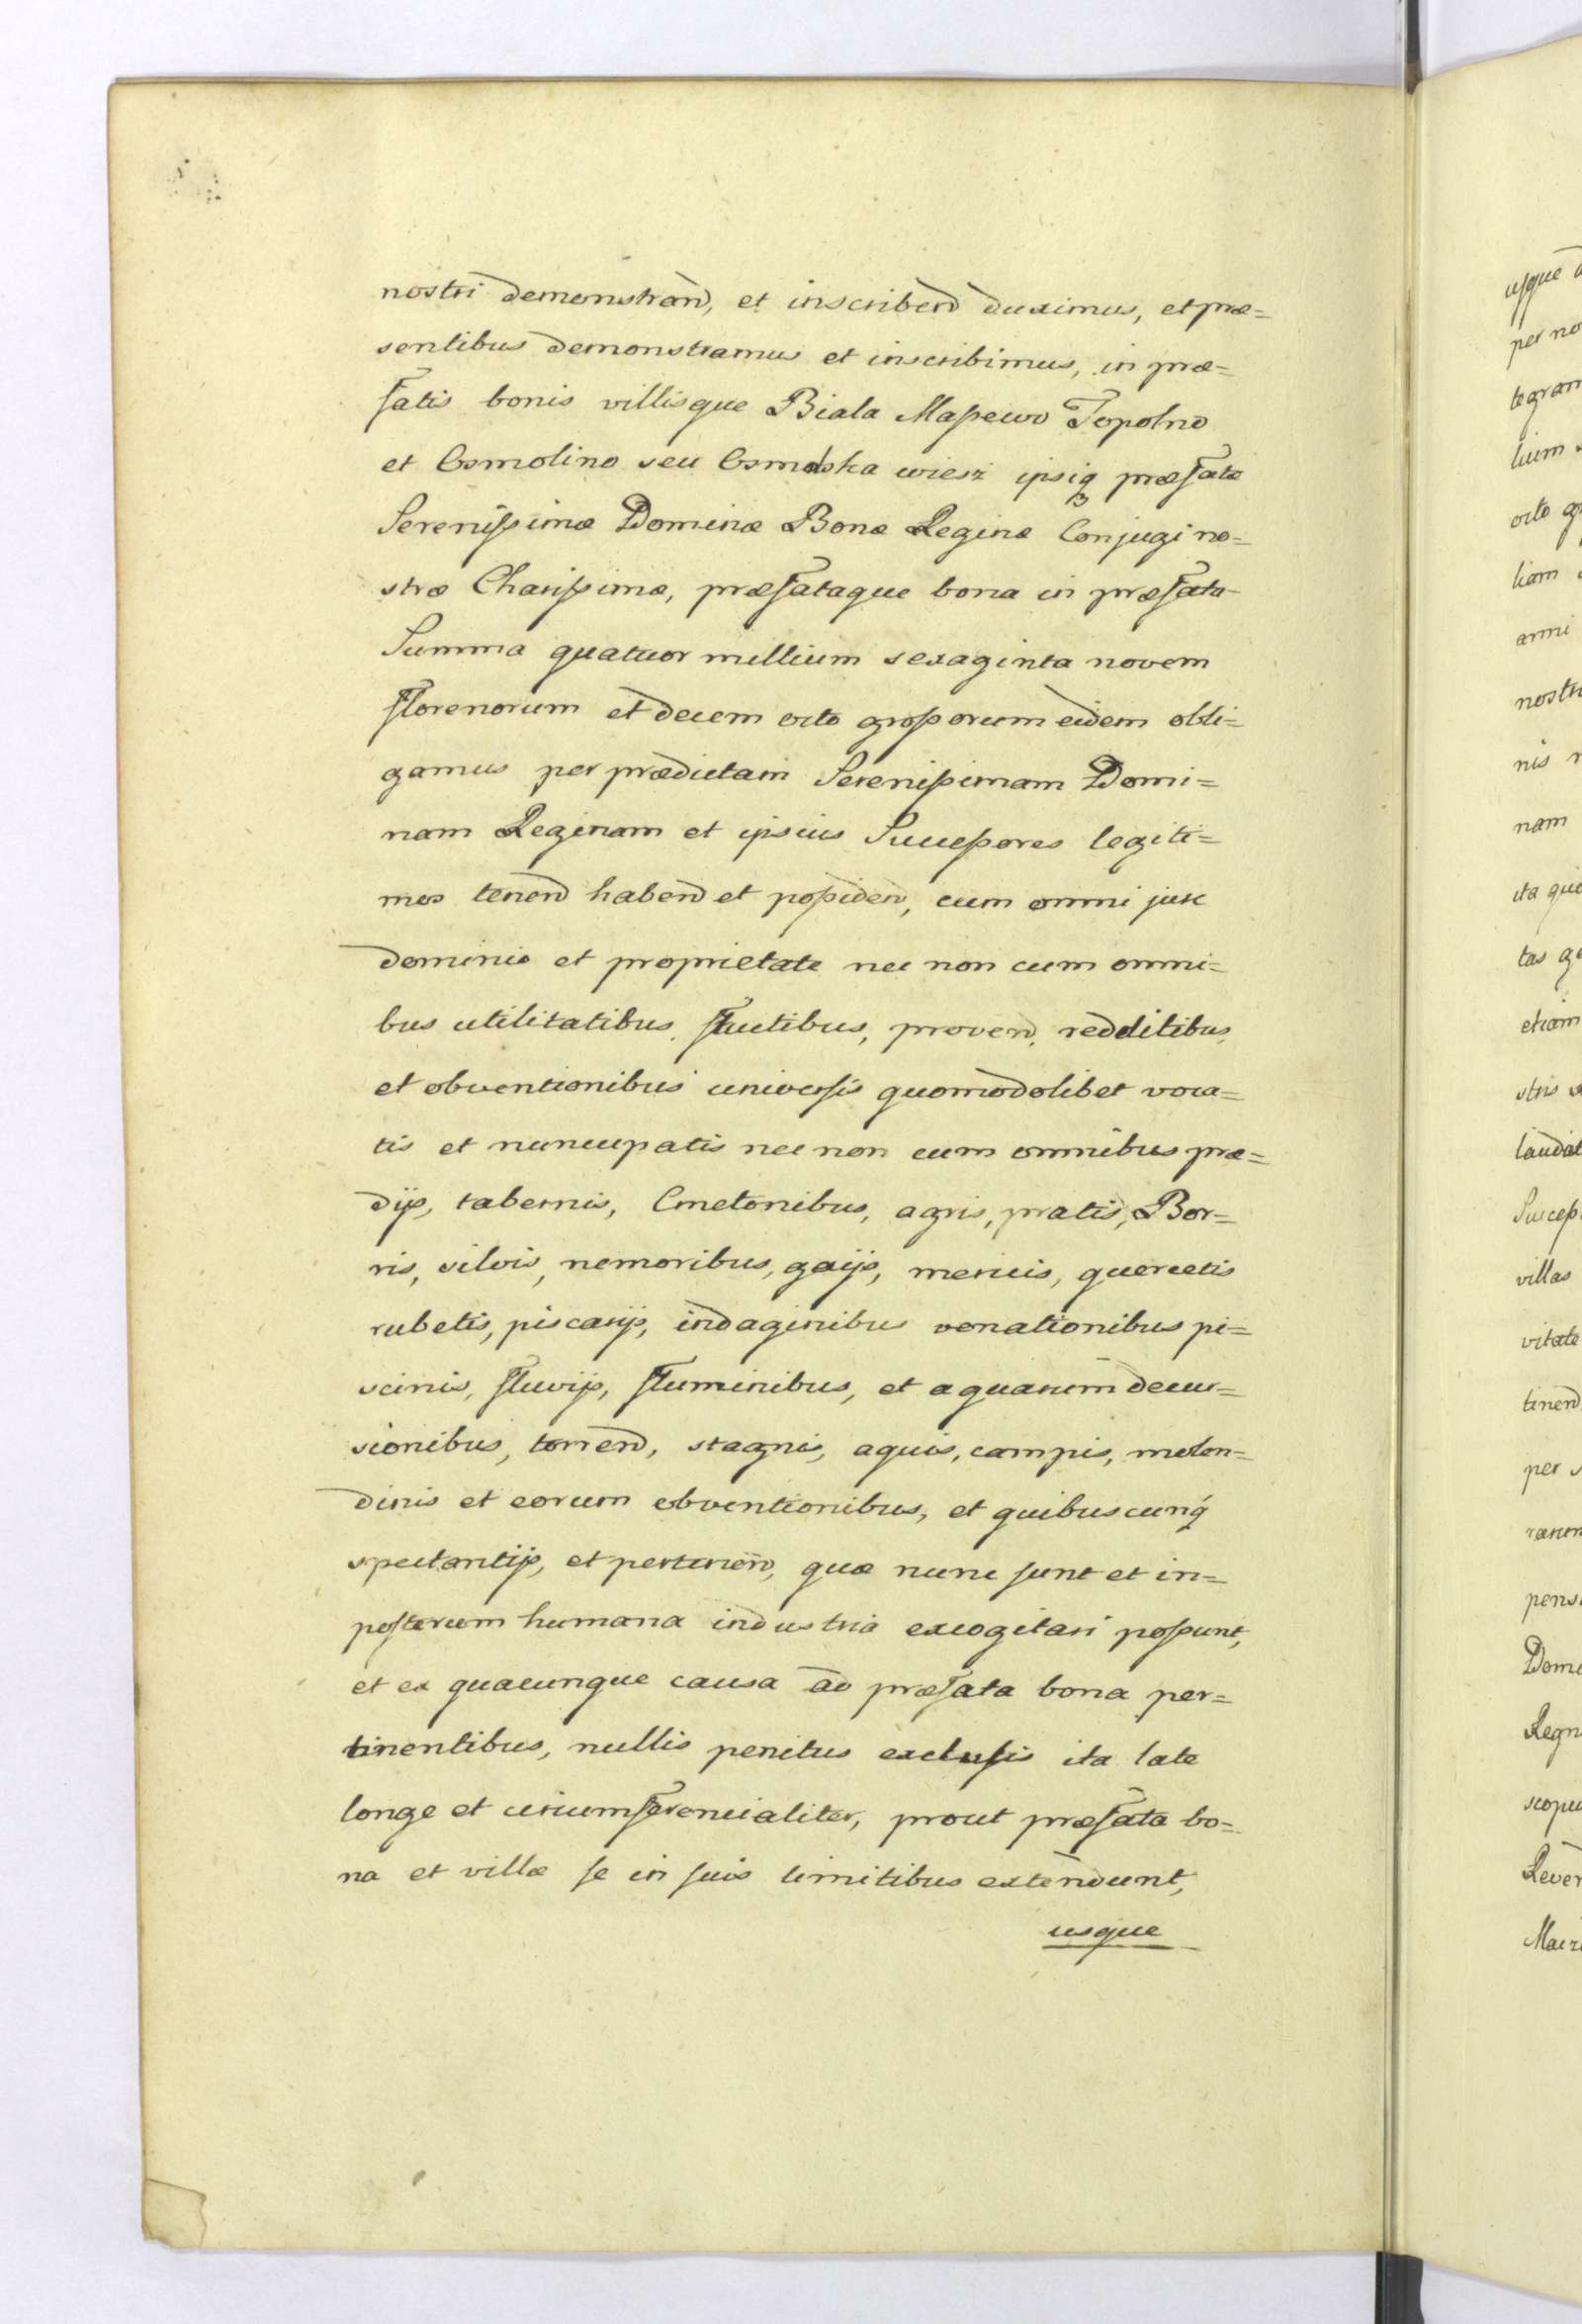 nostri demonstrand, et inscribend duximus, et præ=
sentibus demonstramus et inscribimus, in præ=
fatis bonis villisque Biala Massewo Topolno
et Osmolino seu Osmolska wiesz ipsiq præfatæ
Serenissimæ Dominæ Bonæ Reginæ Conjugi no=
stræ Charissimæ, præfataque bona in præfata
Summa quatuor millium sexaginta novem
florenorum et decem octo grossorum eidem obli=
gamus per prædictam Serenissimam Domi=
nam Reginam et ipsius Successores legiti=
mos tenend habend et possidend, cum omni jure
dominio et proprietate nec non cum omni=
bus utilitatibus, fructibus, proven, redditibus,
et obventionibus universis quomodolibet voca=
tis et nuncupatis nec non cum omnibus præ=
dijs, tabernis, Cmetonibus, agris, pratis, Bor=
ris, silvis, nemoribus, gaijs, mericis, quercetis
rubetis, piscarijs, indaginibus venationibus pi=
scinis, fluvijs, fluminibus, et aquarum decur=
sionibus, torrend, stagnis, aquis, campis, molen=
dinis et eorum obventionibus, et quibuscunq
spectantijs, et pertinen, quæ nunc sunt et in=
posterum humana industria excogitari possunt,
et ex quacunque causa ad præfata bona per=
tinentibus, nullis penitus exclusis ita late
longe et circumferencialiter, prout præfata bo=
na et villæ se in suis limitibus extendunt,
usque